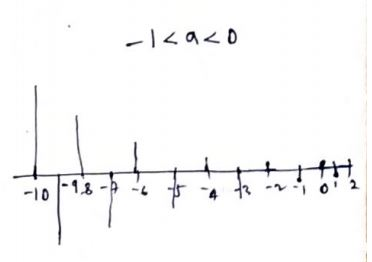 -1<a<0
-10 -9 8 -7 -6 -5 -4 -3 -2 -1 0 1 2